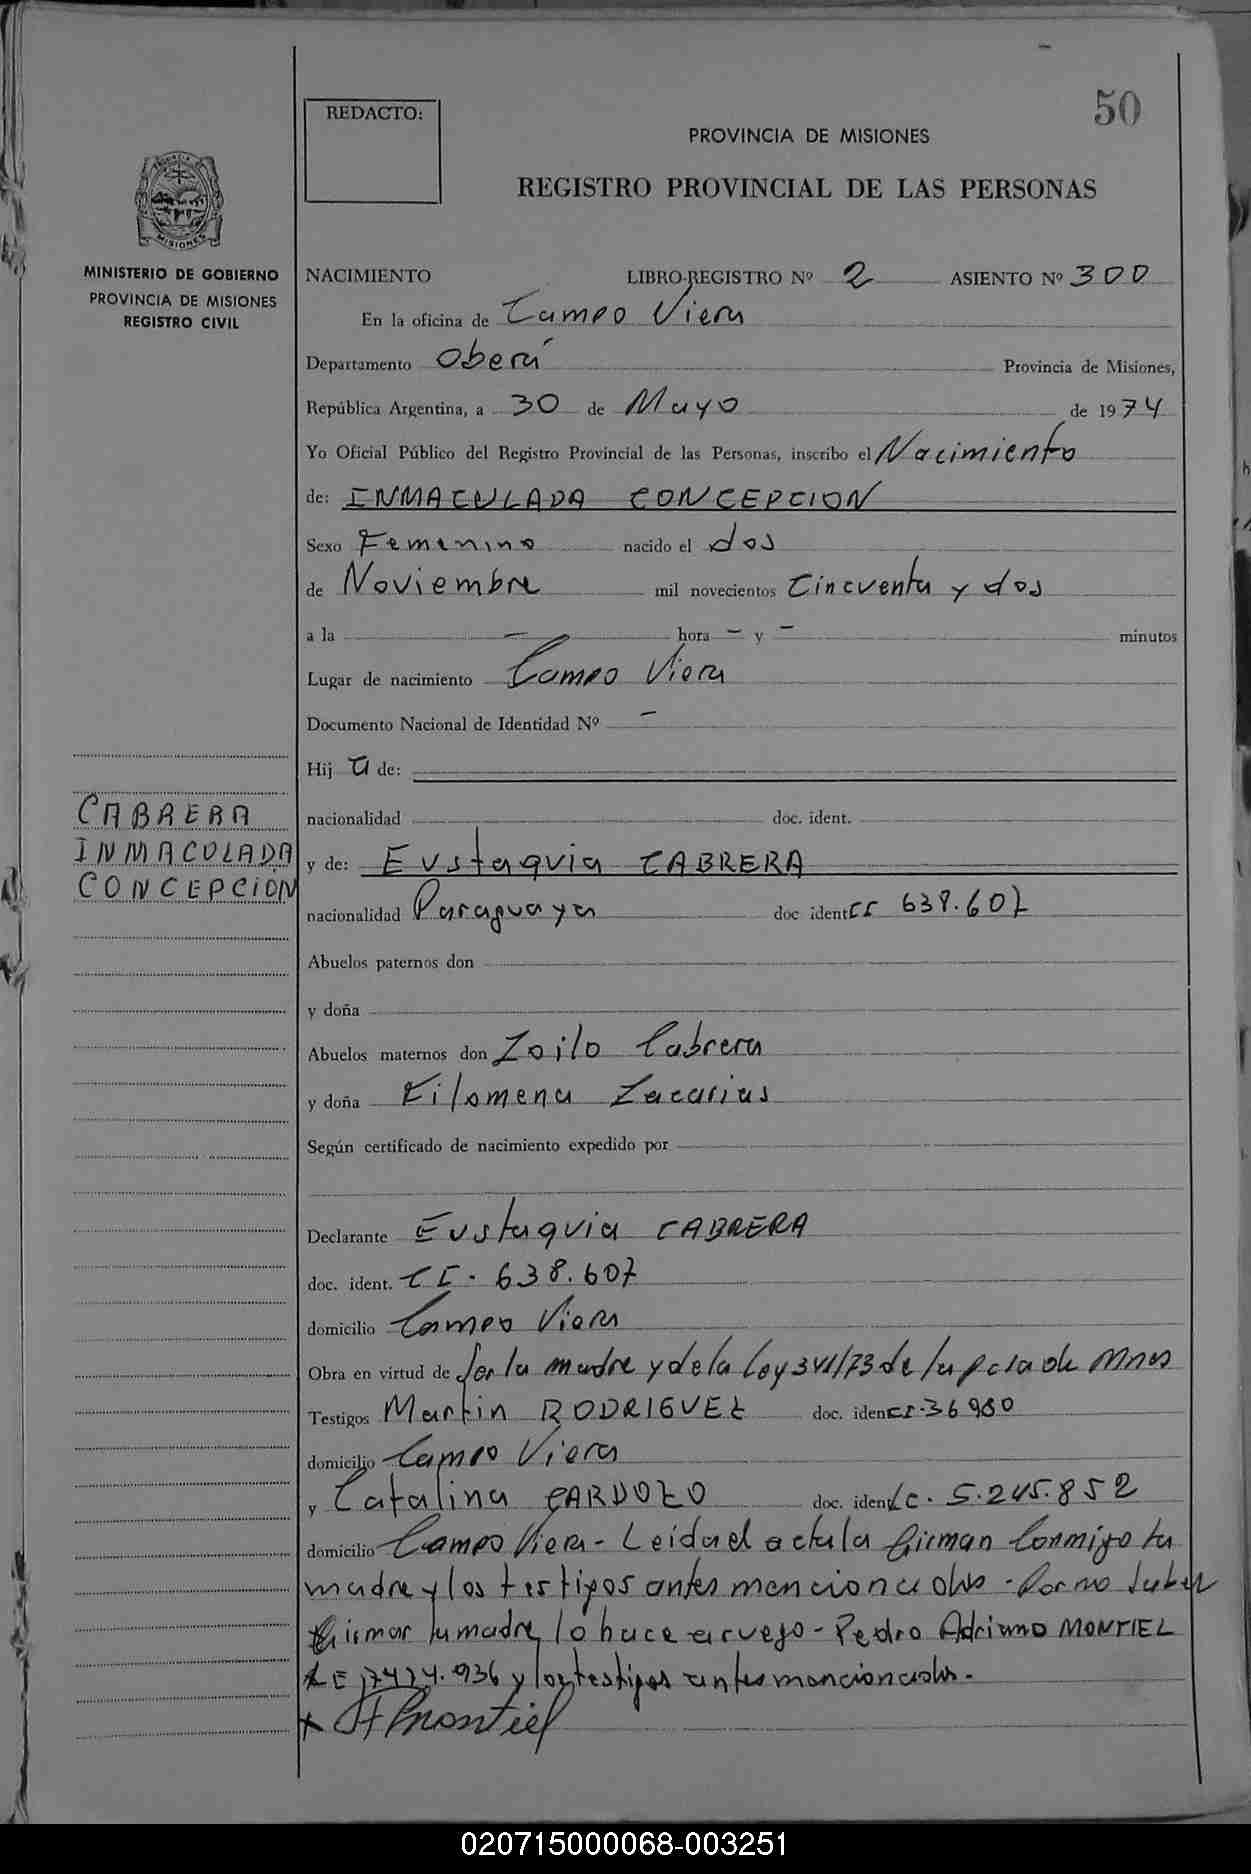 50
REDACTO:
PROVINCIA DE MISIONES
REGISTRO PROVINCIAL DE LAS PERSONAS
MISIONES
MINISTERIO DE GOBIERNO
PROVINCIA DE MISIONES
REGISTRO CIVIL
NACIMIENTO LIBRO-REGISTRO Nº 2 ASIENTO Nº 300
En la oficina de Campo Viera
Departamento Oberá Provincia de Misiones,
República Argentina, a 30 de Mayo de 1974
Yo Oficial Público del Registro Provincial de las Personas, inscribo el Nacimiento
de: INMACULADA CONCEPCION
Sexo Femenino nacido el dos
de Noviembre mil novecientos Cincuenta y dos
a la - hora - y - minutos
Lugar de nacimiento Campo Viera
Documento Nacional de Identidad Nº -
Hij a de:
nacionalidad doc. ident.
CABRERA
INMACULADA
CONCEPCION
y de: Eustaquia CABRERA
nacionalidad Paraguaya doc ident CI 638.607
Abuelos paternos don
y doña
Abuelos maternos don Zoilo Cabrera
y doña Filomena Zacarias
Según certificado de nacimiento expedido por
Declarante Eustaquia CABRERA
doc. ident. CI. 638.607
domicilio Campo Viera
Obra en virtud de Ser la madre y de la Ley 341/73 de la Pcia de Mnes
Testigos Martin RODRIGUEZ doc. iden CI. 36980
domicilio Campo Viera
y Catalina CARDOZO doc. iden LC. 5.245.852
domicilio Campo Viera - Leida el acta la firman Conmigo la
madre y los testigos antes mencionados - Por no saber
firmar la madre lo hace a ruego - Pedro Adriano MONTIEL
LE 7424.936 y los testigos antes mencionados.
x Montiel
020715000068-003251